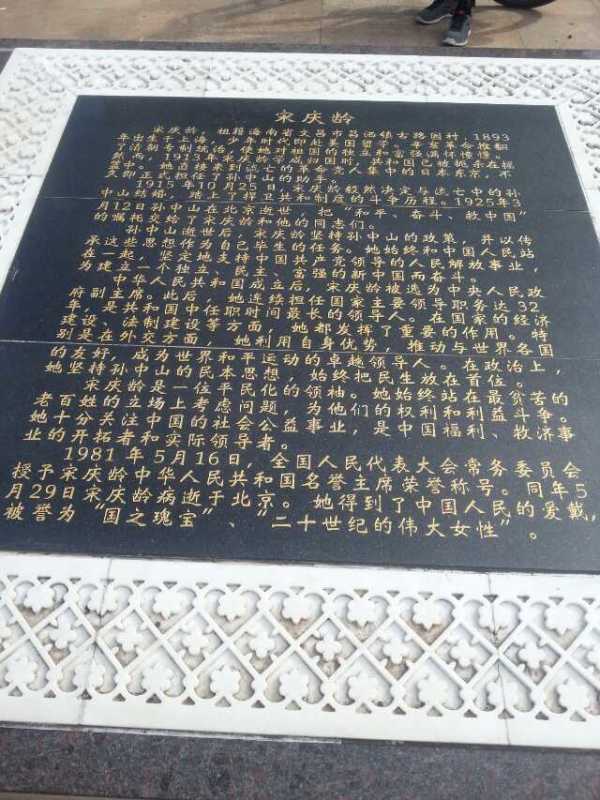 宋庆龄
宋庆龄，祖籍海南省文昌市昌洒镇古路园村，1893
年出生于上海，少年时代即赴美国留学。辛亥革命推翻
了清朝专制统治，她对祖国的独立和富强满怀憧憬。
然而，1913年宋庆龄学成归国时，共和国已被扼杀在摇
篮中。她直接来到流亡的革命党人集中的日本东京，不
久即正式担任了孙中山的助手。
1915年10月25日，宋庆龄毅然决定与流亡中的孙
中山结婚，踏上了捍卫共和制度的斗争历程。1925年3
月12日孙中山在北京逝世，把“和平、奋斗、救中国”
的嘱托交给了宋庆龄和他的同志们。
孙中山逝世后，宋庆龄坚持孙中山的政策，并以传
承这些思想作为自己毕生的任务。她始终和中国人民站
在一起，坚定地支持中国共产党领导的人民解放事业，
为建立一个独立、民主、富强的新中国而奋斗。
中华人民共和国成立后，宋庆龄被选为中央人民政
府副主席。此后，她连续担任国家主要领导职务达32
年，是共和国中任职时间最长的领导人。在国家的经济
建设、法制建设等方面，她都发挥了重要的作用。特
别是在外交方面，她利用自身优势，推动与世界各国
的友好，成为世界和平运动的卓越领导人。在政治上，
她坚持孙中山的民本思想，始终把民生放在首位。
宋庆龄是一位平民化的领袖。她始终站在最贫苦的
老百姓的立场上考虑问题，为他们的权利和利益斗争。
她十分关注中国的社会公益事业，是中国福利、救济事
业的开拓者和实际领导者。
1981年5月16日，全国人民代表大会常务委员会
授予宋庆龄中华人民共和国名誉主席荣誉称号。同年5
月29日宋庆龄病逝于北京。她得到了中国人民的爱戴，
被誉为“国之瑰宝”、“二十世纪的伟大女性”。